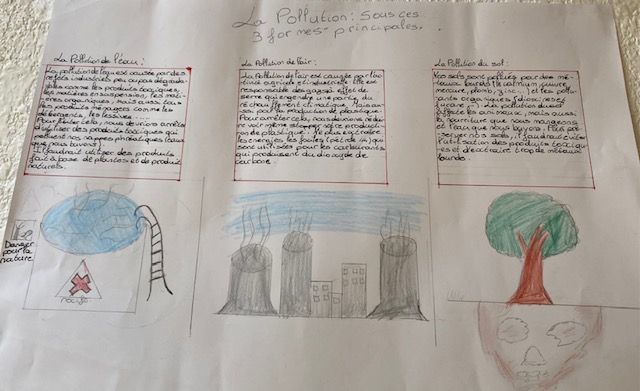 La Pollution: Sous ces
3 formes principales.
La Pollution de l'eau:
La pollution de l'eau est causée par des
rejets industriels peu ou pas dégrada-
bles comme les produits toxiques,
les matières en suspension, les mati-
ères organiques, mais aussi tous
les produits ménagers comme les
détergents, les lessives....
Pour éviter cela, nous devrions arrêter
d'utiliser des produits toxiques qui
polluent les nappes phréatiques (eaux
que nous buvons).
Il faudrait utiliser des produits
fait à base de plantes et de produits
naturels.
La Pollution de l'air:
La Pollution de l'air est causée par l'ac-
tivité agricole et industrielle. Elle est
responsable des gaz à effet de
serre qui engendre une partie du
réchauffement climatique, mais aus-
si par la production de plastique.
Pour arrêter cela, nous devrions rédui-
re voir même stopper notre producti-
on de plastique. Ne plus extraire
les energies fossiles (pétrole) qui
sont utilisées pour les carburants
qui produisent du dioxyde de
carbone.
La Pollution du sol:
Nos sols sont pollués par des mé-
taux lourds (cadmium, cuivre,
mercure, plomb, zinc...) et les pollu-
ants organiques (dioxines et
furane,...). La pollution du sol
affecte les animaux, mais aussi
la nourriture que nous mangeons
et l'eau que nous buvons. Pour pré-
server nos sols, il faudrait éviter
l'utilisation des produits toxiqu-
es et d'extraire trop de métaux
lourds.
Danger
pour la
nature